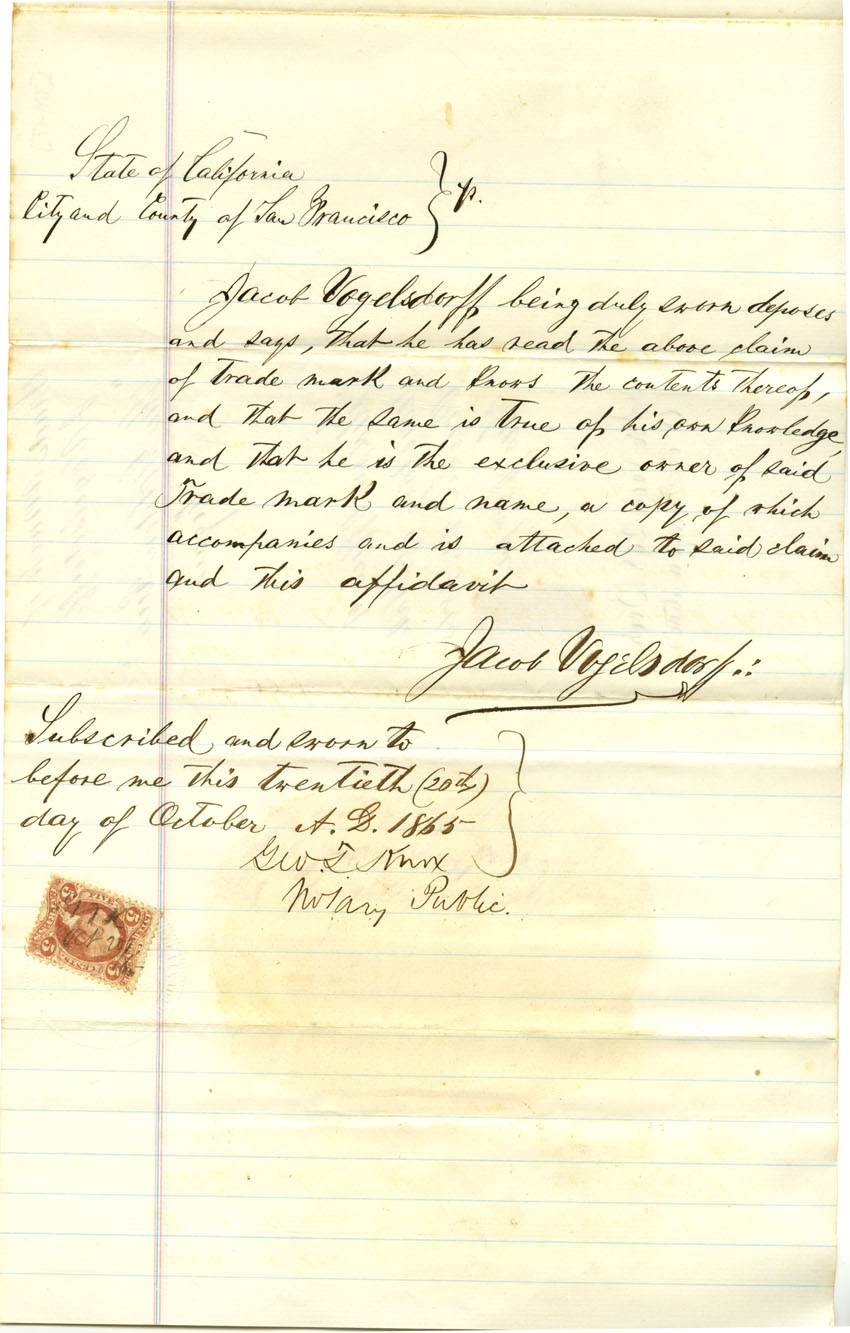 State of California
City and County of San Francisco } ss.
Jacob Vogelsdorff being duly sworn deposes
and says, that he has read the above claim
of trade mark and knows the contents thereof,
and that the same is true of his own knowledge,
and that he is the exclusive owner of said
Trade mark and name, a copy of which
accompanies and is attached to said claim
and this affidavit
Jacob Vogelsdorff
Subscribed and sworn to
before me this twentieth (20th)
day of October A.D. 1865
Geo. T Knox
Notary Public.
FIVE
5 5
Oct 20
5 5
CENTS